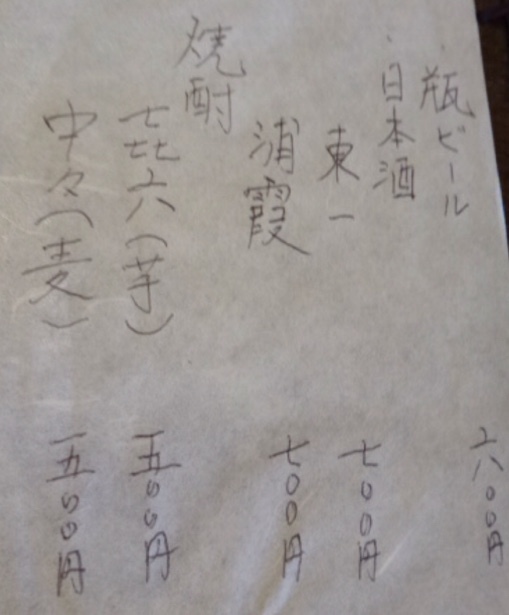 ・瓶ビール 六〇〇円
・日本酒
東一 七〇〇円
浦霞 七〇〇円
焼酎
㐂六(芋) 五〇〇円
中々(麦) 五〇〇円